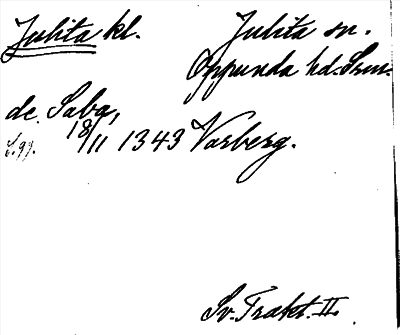 Julita kl. Julita sn.
Oppunda hd. Srm.
de Saba,
18/11 1343 Varberg.
Sv. Trakt. II.